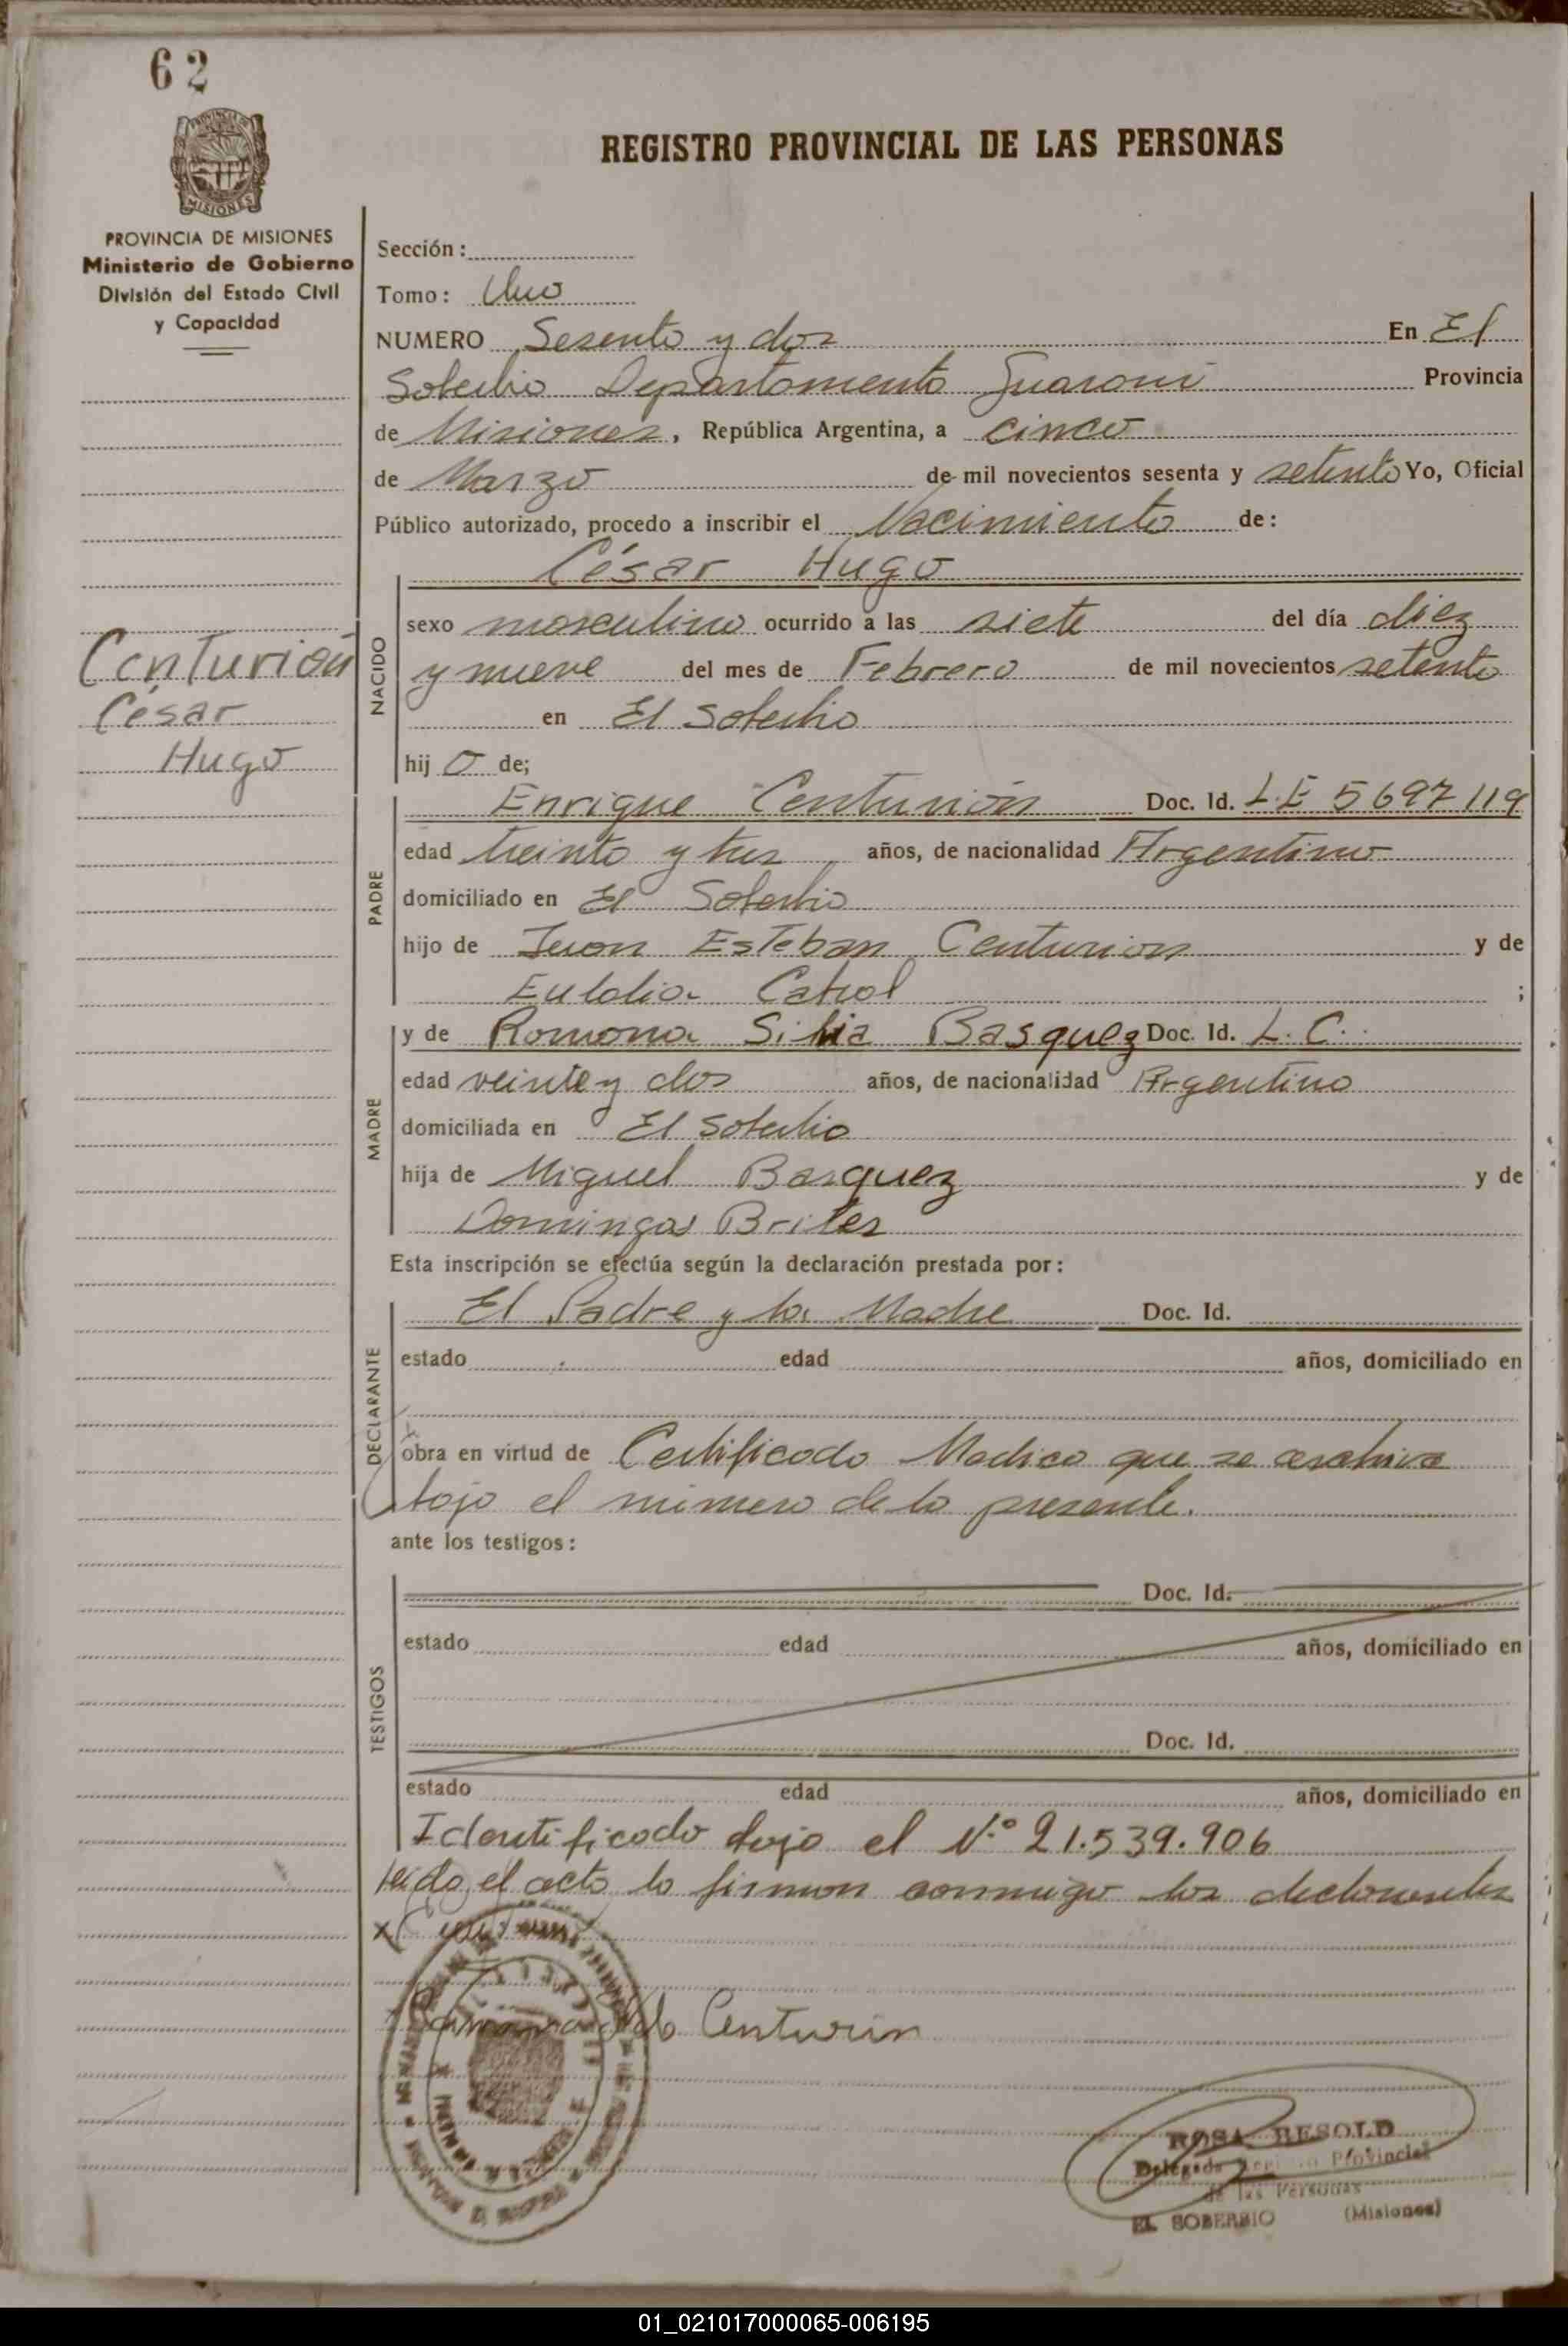 62
PROVINCIA DE
MISIONES
REGISTRO PROVINCIAL DE LAS PERSONAS
PROVINCIA DE MISIONES
Ministerio de Gobierno
División del Estado Civil
y Capacidad
Sección :
Tomo : Uno
NUMERO Sesenta y dos En El
Soberbio Departamento Guaraní Provincia
de Misiones, República Argentina, a cinco
de Marzo de mil novecientos sesenta y setenta Yo, Oficial
Público autorizado, procedo a inscribir el Nacimiento de :
César Hugo
Centurión
César
Hugo
NACIDO
sexo masculino ocurrido a las siete del día diez
y nueve del mes de Febrero de mil novecientos setenta
en El Soberbio
hij o de;
PADRE
Enrique Centurión Doc. Id. L.E 5697119
edad treinta y tres años, de nacionalidad Argentino
domiciliado en El Soberbio
hijo de Juan Esteban Centurion y de
Eulalia Catrol ;
MADRE
y de Ramona Silvia Basquez Doc. Id. L. C.
edad veinte y dos años, de nacionalidad Argentina
domiciliada en El Soberbio
hija de Miguel Basquez y de
Domingas Brites
Esta inscripción se efectúa según la declaración prestada por :
DECLARANTE
El Padre y la Madre Doc. Id.
estado edad años, domiciliado en
obra en virtud de Certificado Medico que se archiva
bajo el numero de la presente.
ante los testigos :
TESTIGOS
Doc. Id.
estado edad años, domiciliado en
Doc. Id.
estado edad años, domiciliado en
Identificado bajo el N.º 21.539.906
leido el acta la firman conmigo los declarantes
Centurin
ROSA RESOLD
Delegada Provincial
de las Personas
EL SOBERBIO (Misiones)
01_021017000065-006195